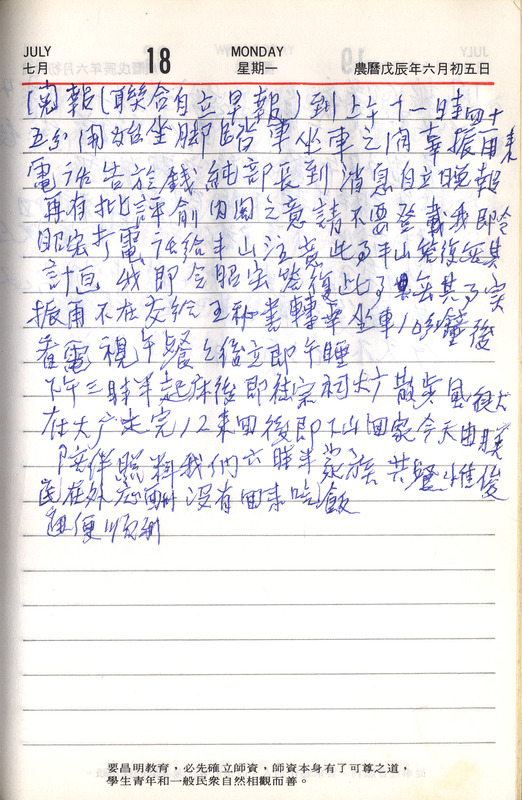 JULY 18 MONDAY
七月 星期一 農曆戊辰年六月初五日
報(聯合自立早報)到上午十一時四十
五分開始坐脚踏車坐車之間章振甫來
電話告於錢純部長到消息自立晚報
再有批評俞內閣之意請不要登載我即令
昭宏打電話給半山注意此了半山答後無其
計画我即令昭宏答復此了無其了实
振甫不在交給王秘書轉華坐車10分鐘後
看電視午餐之後立即午睡
下午三時半起床後即往宗祠大广散步風很大
在大广走完12來回後即下山回家今天由
陪伴照料我們六時半家族共餐惟俊
民在外应酬沒有回來吃飯
通便順利
要昌明教育,必先確立師資,師資本身有了可尊之道,
學生青年和一般民衆自然相觀而善。